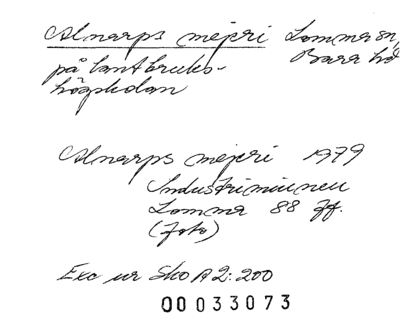 Alnarps mejeri Lomma sn,
Bara hd
på lantbruks-
högskolan
Alnarps mejeri 1979
Industriminnen
Lomma 88 ff.
(foto)
Exc ur Sko A 2:200
00033073